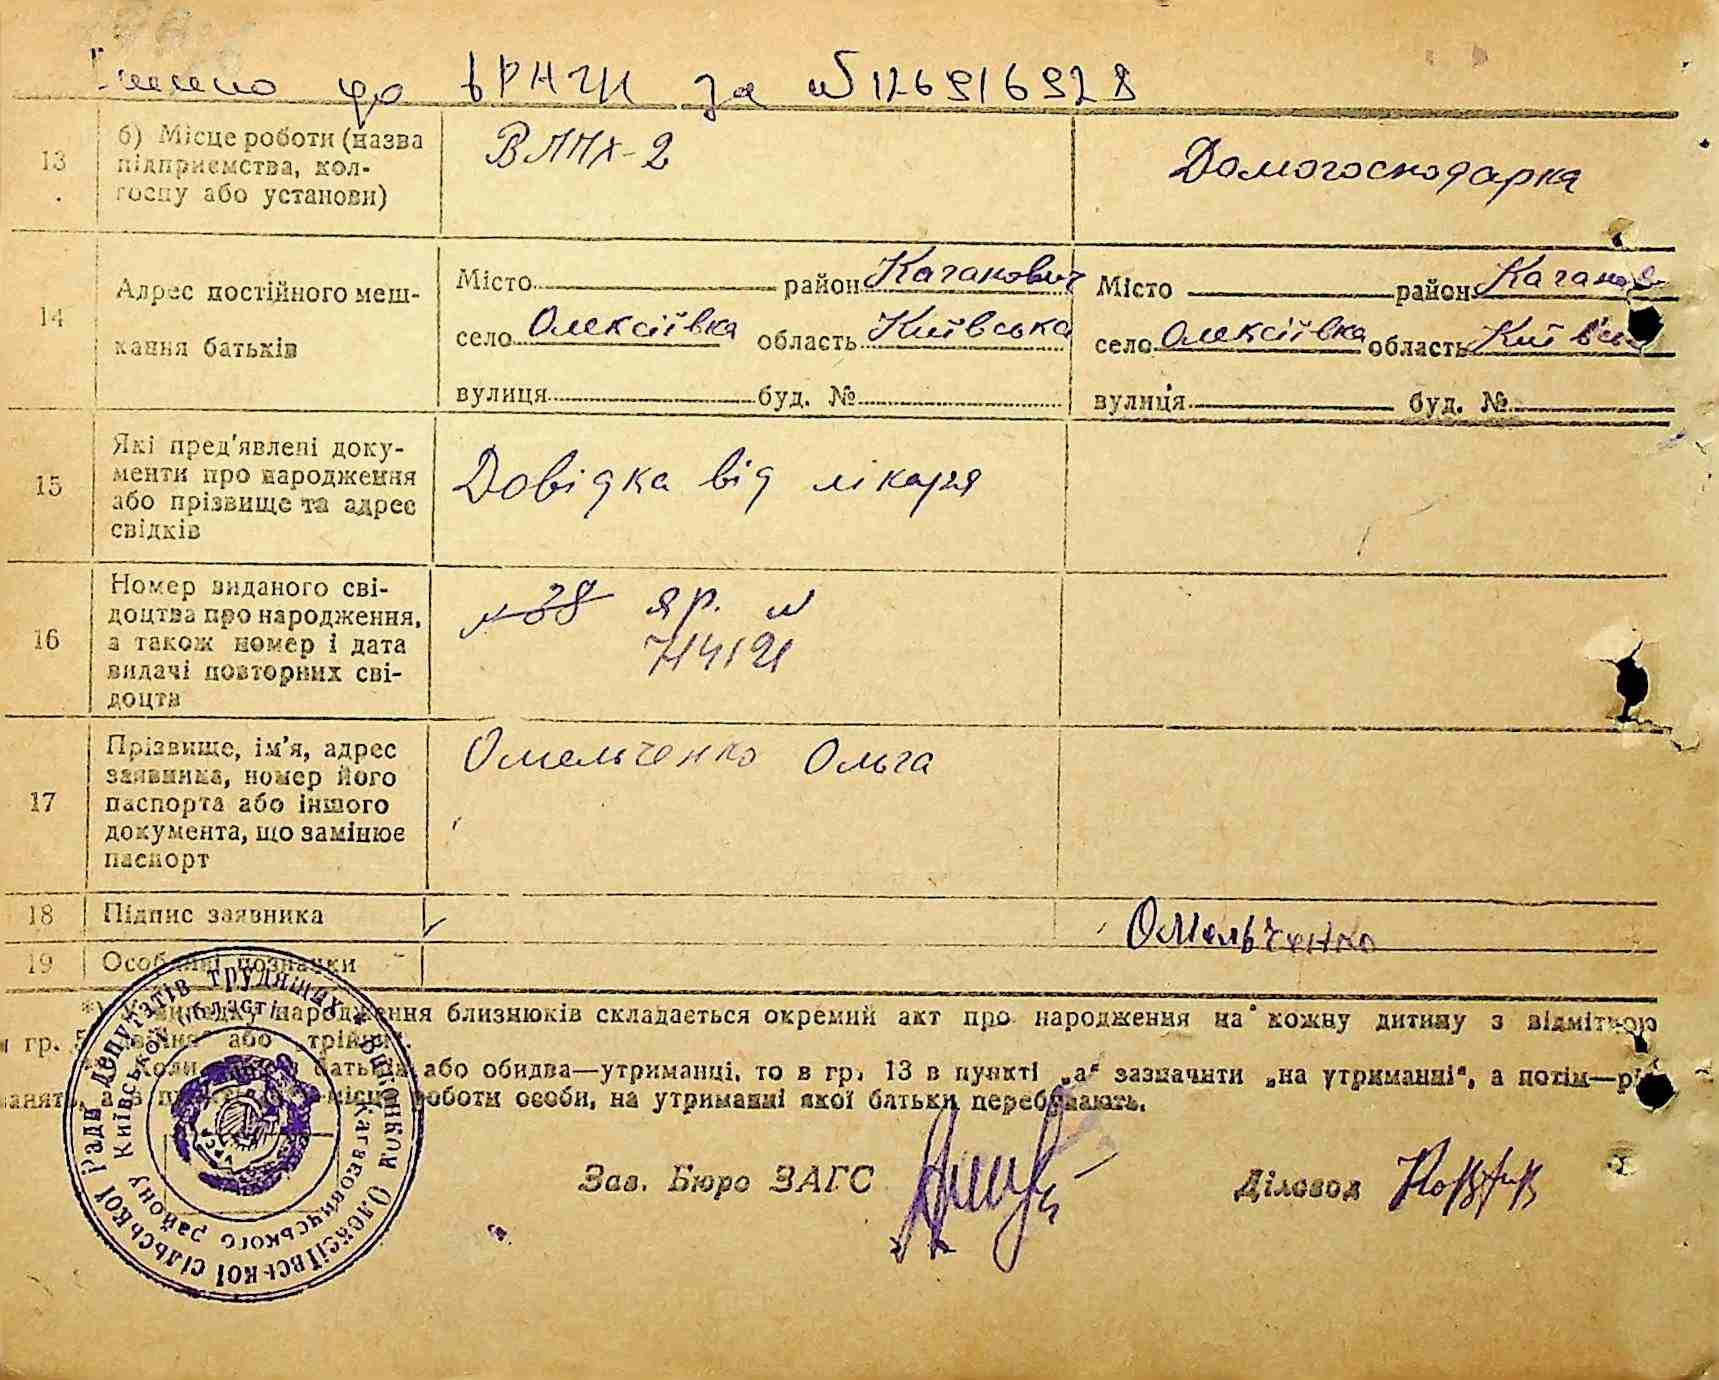 до ВРНГН за № 126916928
13 б) Місце роботи (назва підприємства, колгоспу або установи) ВЛПХ-2 Домогосподарка
14 Адрес постійного мешкання батьків
Місто район Каганович Місто район Кагано
село Олексіївка область Київська село Олексіївка область Київсь
вулиця буд. № вулиця буд. №
15 Які пред'явлені доку-
менти про народження
або прізвище та адрес
свідків
Довідка від лікаря
16 Номер виданого сві-
доцтва про народження,
а також номер і дата
видачі повторних сві-
доцтв
№ 38 ЯР. №
17 Прізвище, ім'я, адрес
заявника, номер його
паспорта або іншого
документа, що замінює
паспорт
Омельченко Ольга
18 Підпис заявника Омельченко
19 Особливі позначки
народження близнюків складається окремий акт про народження на кожну дитину з відміткою
гр. або трійня".
Коли батьки або обидва—утриманці, то в гр. 13 в пункті „а“ зазначити „на утриманні“, а потім—
роботи особи, на утриманні якої батьки перебувають.
Зав. Бюро ЗАГС Діловод
Виконком Олексіївської сільської Ради депутатів трудящих
Кагановичського району Київської області
УРСР